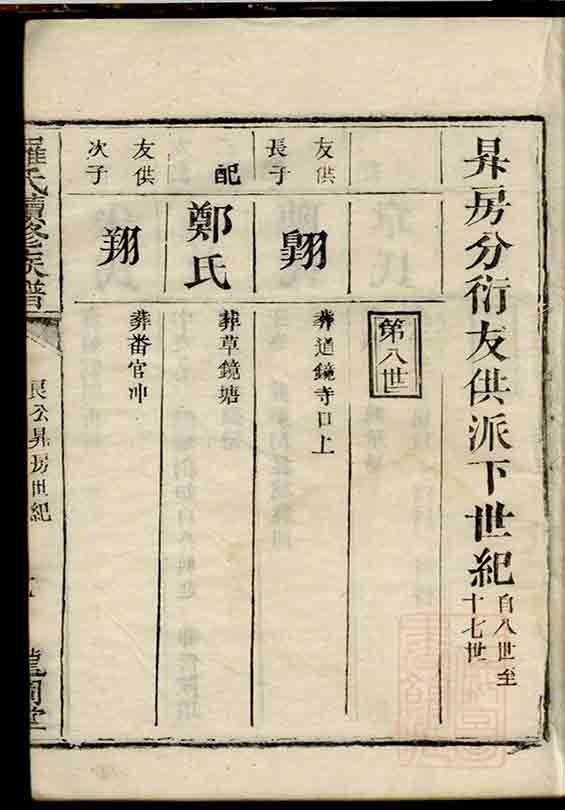 昇房分衍友供派下世紀 自八世至十七世
第八世
友供長子
翺
葬道鏡寺口上
配
鄭氏
葬草鏡塘
友供次子
翔
葬番官冲
羅氏續修族譜
良公昇房世紀